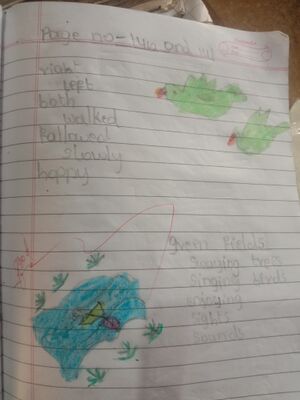 Page no - 140 and 141
right
left
both
walked
Fallowed
slowly
happy
green fields
Swaying trees
Singing birds
enjoying
sights
Sounds